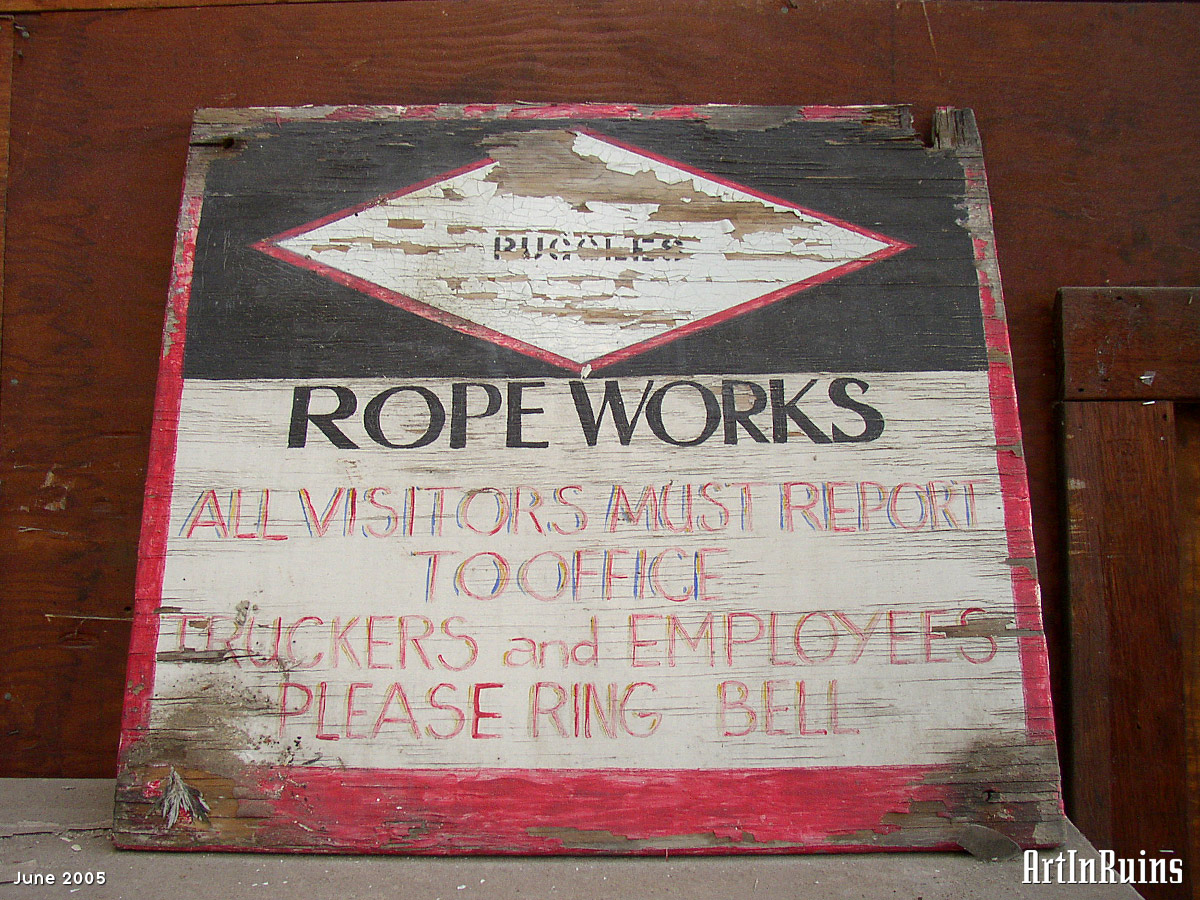 RUGGLES
ROPE WORKS
ALL VISITORS MUST REPORT
TO OFFICE
TRUCKERS and EMPLOYEES
PLEASE RING BELL
June 2005
ArtInRuins